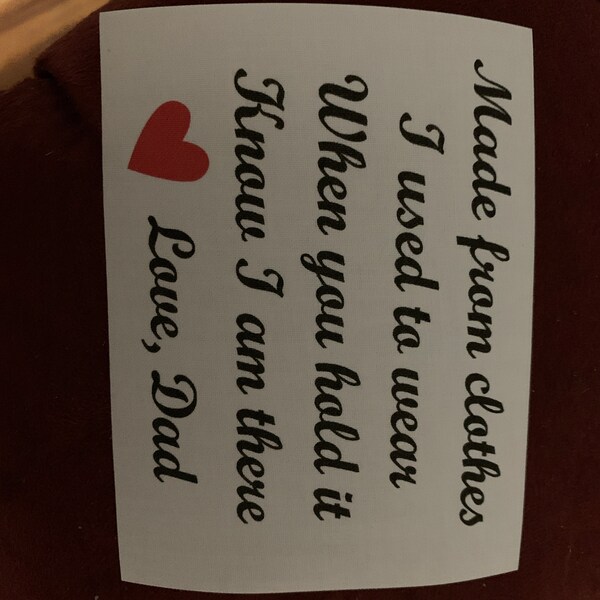 Made from clothes
I used to wear
When you hold it
Know I am there
Love, Dad